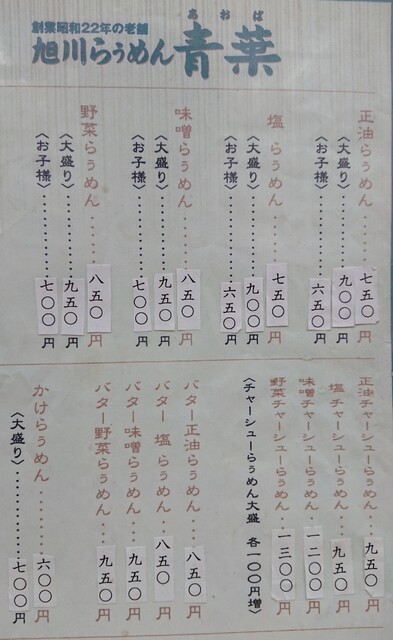 創業昭和22年の老舗
旭川らぅめん青葉
あおば
正油らぅめん………七五〇円
〈大盛り〉………九〇〇円
〈お子様〉………六五〇円
塩らぅめん………七五〇円
〈大盛り〉………九〇〇円
〈お子様〉………六五〇円
味噌らぅめん………八五〇円
〈大盛り〉………九五〇円
〈お子様〉………七〇〇円
野菜らぅめん………八五〇円
〈大盛り〉………九五〇円
〈お子様〉………七〇〇円
正油チャーシューらぅめん…九五〇円
塩チャーシューらぅめん…九五〇円
味噌チャーシューらぅめん…一二〇〇円
野菜チャーシューらぅめん…一三〇〇円
〈チャーシューらぅめん大盛 各一〇〇円増〉
バター正油らぅめん…八五〇円
バター塩らぅめん…八五〇円
バター味噌らぅめん…九五〇円
バター野菜らぅめん…九五〇円
かけらぅめん………六〇〇円
〈大盛り〉………七〇〇円